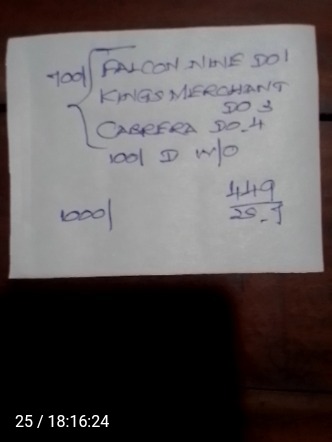 700/ FALCON NINE DO 1
KINGS MERCHANT
DO 3
CABRERA DO. 4
100/ D W/O
449
1000/
25 / 18:16:24